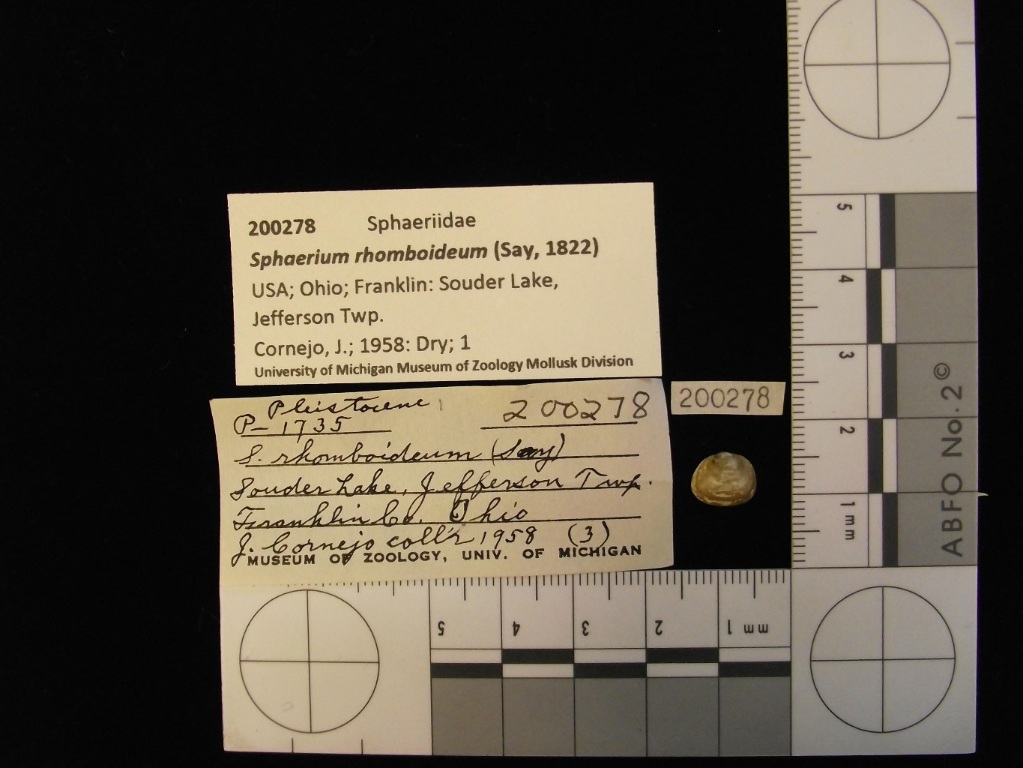 200278 Sphaeriidae
Sphaerium rhomboideum (Say, 1822)
USA; Ohio; Franklin: Souder Lake,
Jefferson Twp.
Cornejo, J.; 1958: Dry; 1
University of Michigan Museum of Zoology Mollusk Division
Pleistocene
P-1735 200278
S. rhomboideum (Say)
Souder Lake, Jefferson Twp.
Franklin Co. Ohio
J. Cornejo coll'r 1958 (3)
MUSEUM OF ZOOLOGY, UNIV. OF MICHIGAN
200278
5
4
3
2
1 mm
ABFO No. 2 ©
5 4 3 2 1 mm